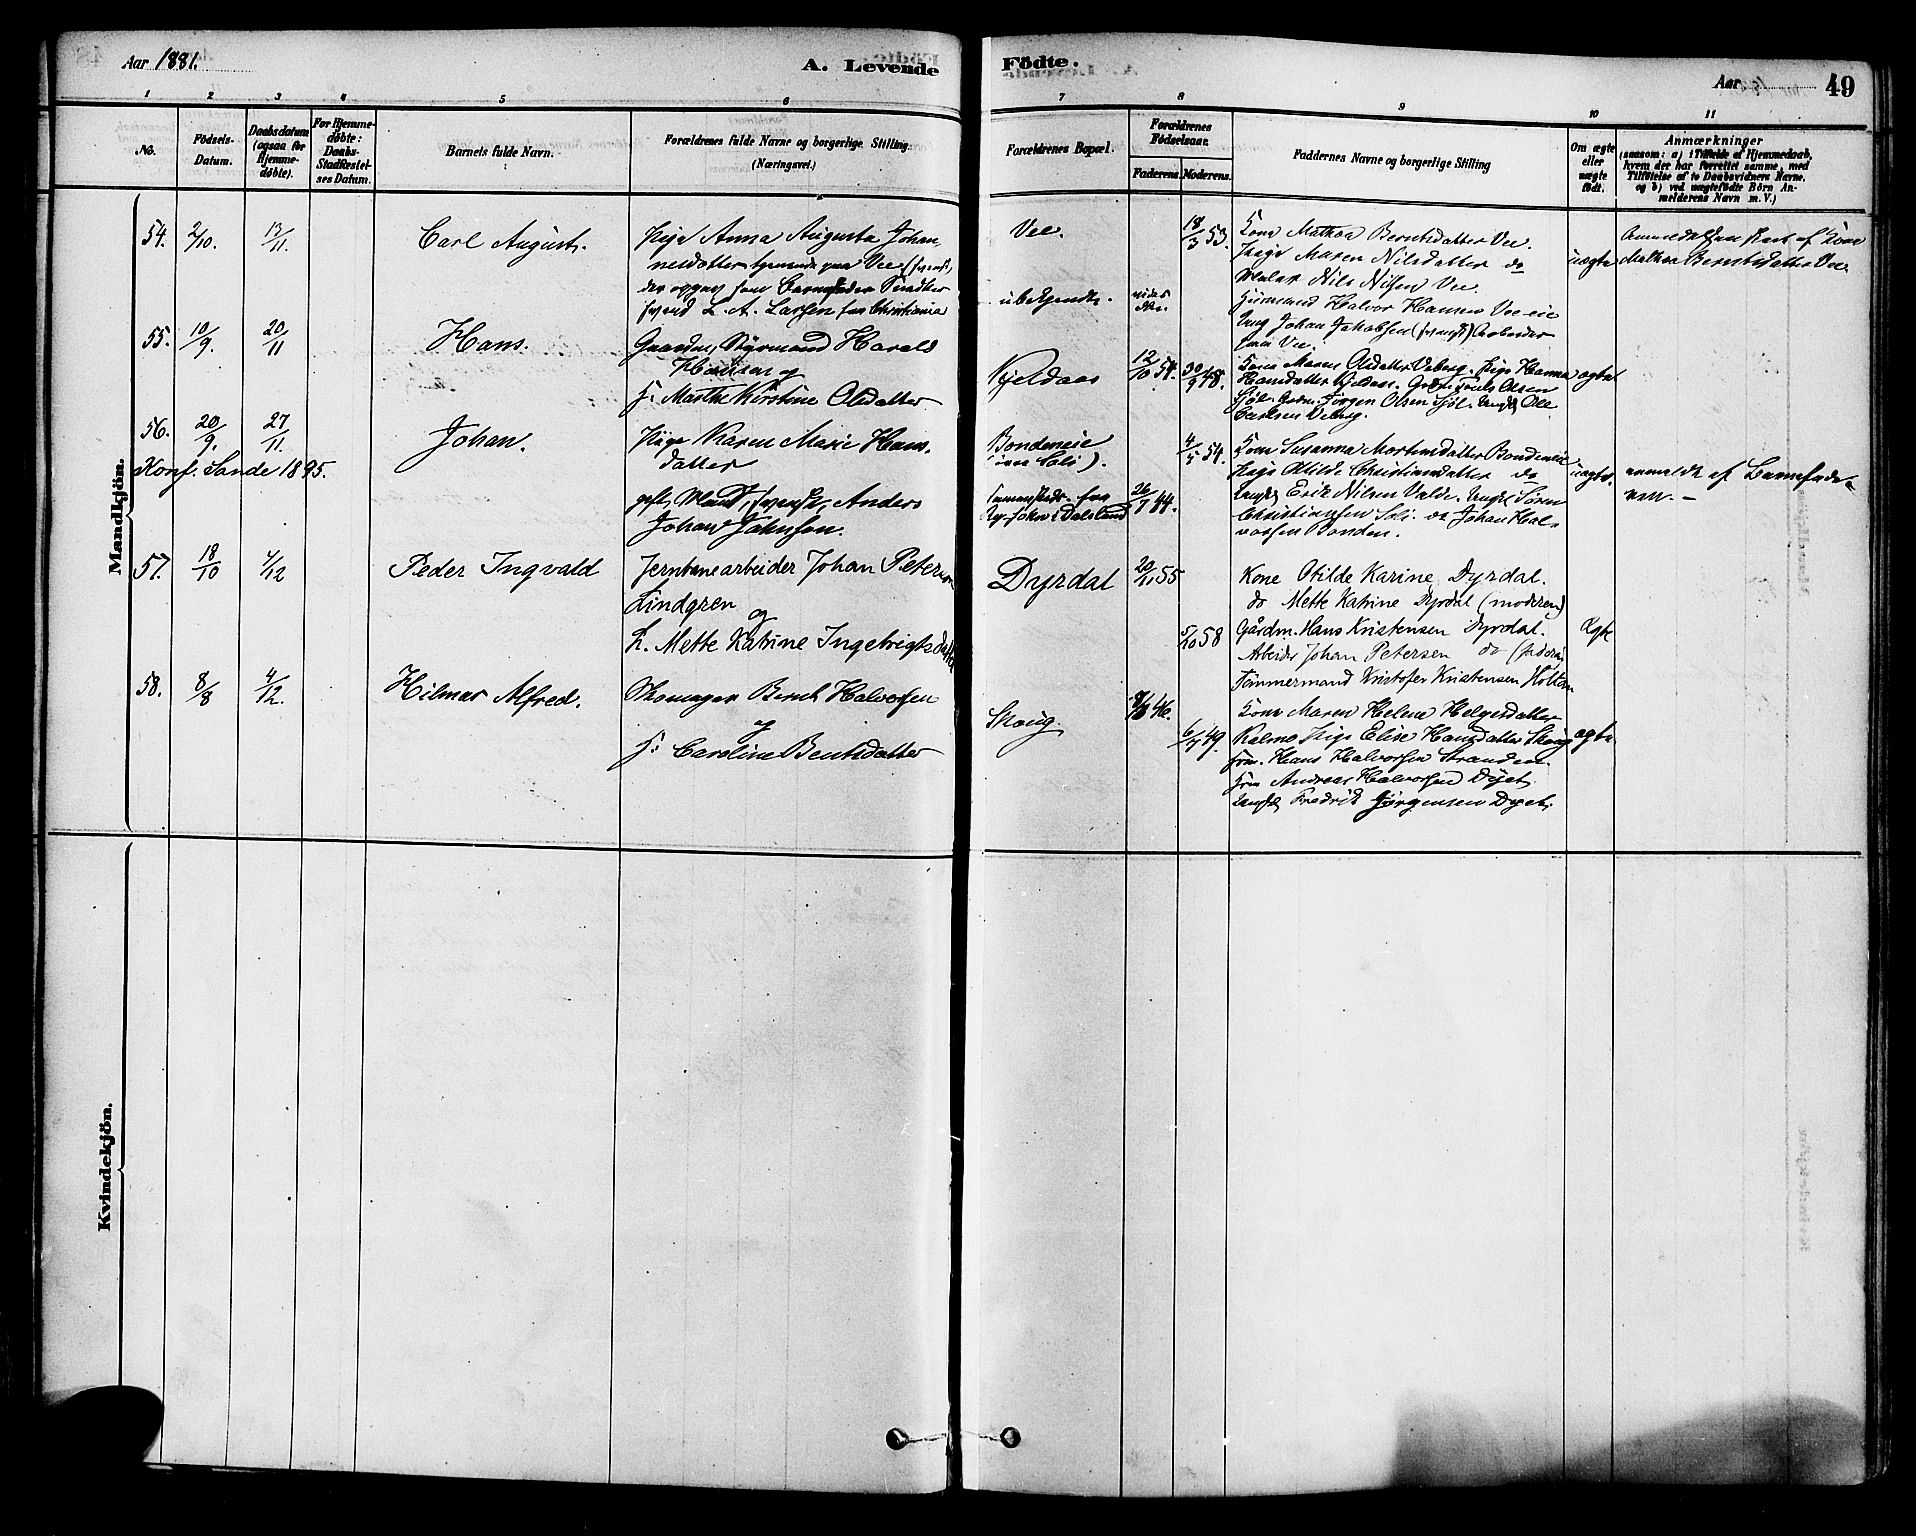 Aar 1881.
A. Levende
Födte.
Aar
49
1 2 3 4 5 6
7 8 9 10 11
No.
Födsels-
Datum.
Daabsdatum
(ogsaa for
Hjemme-
døbte).
For Hjemme-
døbte:
Daabs-
Stadfæstel-
ses Datum.
Barnets fulde Navn.
Forældrenes fulde Navne og borgerlige Stilling.
(Næringsvei.)
Forældrenes Bopæl.
Forældrenes
Födselsaar.
Faderens. Moderens.
Faddernes Navne og borgerlige Stilling
Om ægte
eller
uægte
födt.
Anmærkninger
(saasom: a) i Tilfælde af Hjemmedaab,
hvem der har forrettet samme, med
Tilföielse af to Daabsvidners Navne,
og b) ved uægtefödte Börn An-
melderens Navn m. V.)
Mandkjön.
54. 2/10. 13/11. Carl August.
Pige Anna Augusta Johan-
nesdatter tjenende paa Vee (svensk),
der opgav som Barnefader Snedker
svend L. A. Larsen fra Christiania
Vee.
ubekjendt.
18/3 53.
Kone Mathea Berntsdatter Vee.
Pige Maren Nilsdatter do
Maler Nils Nilsen Vee.
Huusmand Halvor Hansen Vee-eie
Ung Johan Jakobsen (svensk) Arbeider
paa Vee.
uægte
Mathea Berntsdatter Vee
55. 10/9. 20/11 Hans.
Gaardm, Styrmand Harald
Hansen og
H: Marthe Kirstine Olsdatter
Kjeldaas
12/10 54. 30/9 48.
Kone Maren Olsdatter Veberg. Pige Hanna
Hansdatter Kjeldaas. Gdm. Olsen
Sjöl. Gdm. Jörgen Olsen Sjöl. Ungk. Ole
Carlsen Veberg.
ægte
56. 20/9. 27/11. Johan.
Konf. Sande 1895.
Pige Karen Marie Hans-
datter
gift Mand, svensk, Anders
Johan Johnsen.
Bondeneie
26/7 44.
4/5 54.
Kone Susanna Mortensdatter Bondeneie
Pige Otilde Christiansdatter do
Ungk. Erik Nilsen Valde. Ungk. Sören
Christiansen Soli. og Johan Hal-
vorsen Bonden.
uægte.
anmeldt af Barnefade-
ren. —
57. 18/10 4/12 Peder Ingvald
Jernbanearbeider Johan Peterson
Lindgren
og
H. Mette Katrine Ingebrigtsdatter
Dyrdal
20/11 55
5/10 58
Kone Otilde Karine Dyrdal.
do Mette Katrine Dyrdal (moderen)
Gårdm. Hans Kristensen Dyrdal.
Arbeider Johan Petersen do (faderen)
Tömmermand Kristofer Kristensen Holtan
Ægte
58. 8/8 4/12. Hilmar Alfred.
Skomager Bernt Halvorsen
og
H: Caroline Berntsdatter
Skoug.
46.
6/7 49.
Kone Maren Helene Helgesdatter
Kalmo Pige Elise Hansdatter Skoug
Hans Halvorsen Stranden.
Andreas Halvorsen Dyet.
Ungk. Fredrik Jörgensen Dyet.
ægte
Kvindekjön.